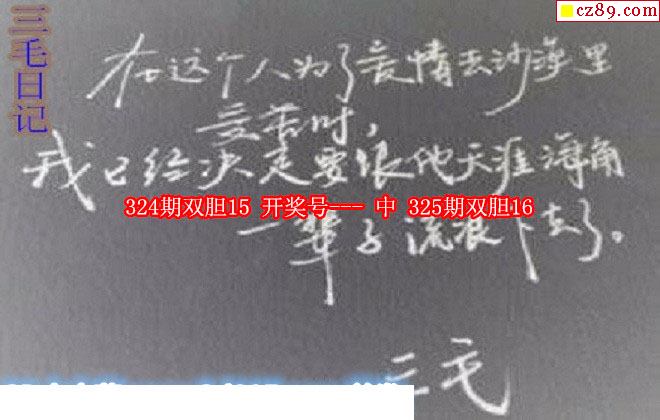 cz89.com
三毛日记
在这个人为了爱情去沙漠里
受苦时，
我已经决定要跟他天涯海角
324期双胆15 开奖号--- 中 325期双胆16
一辈子流浪下去了。
三毛